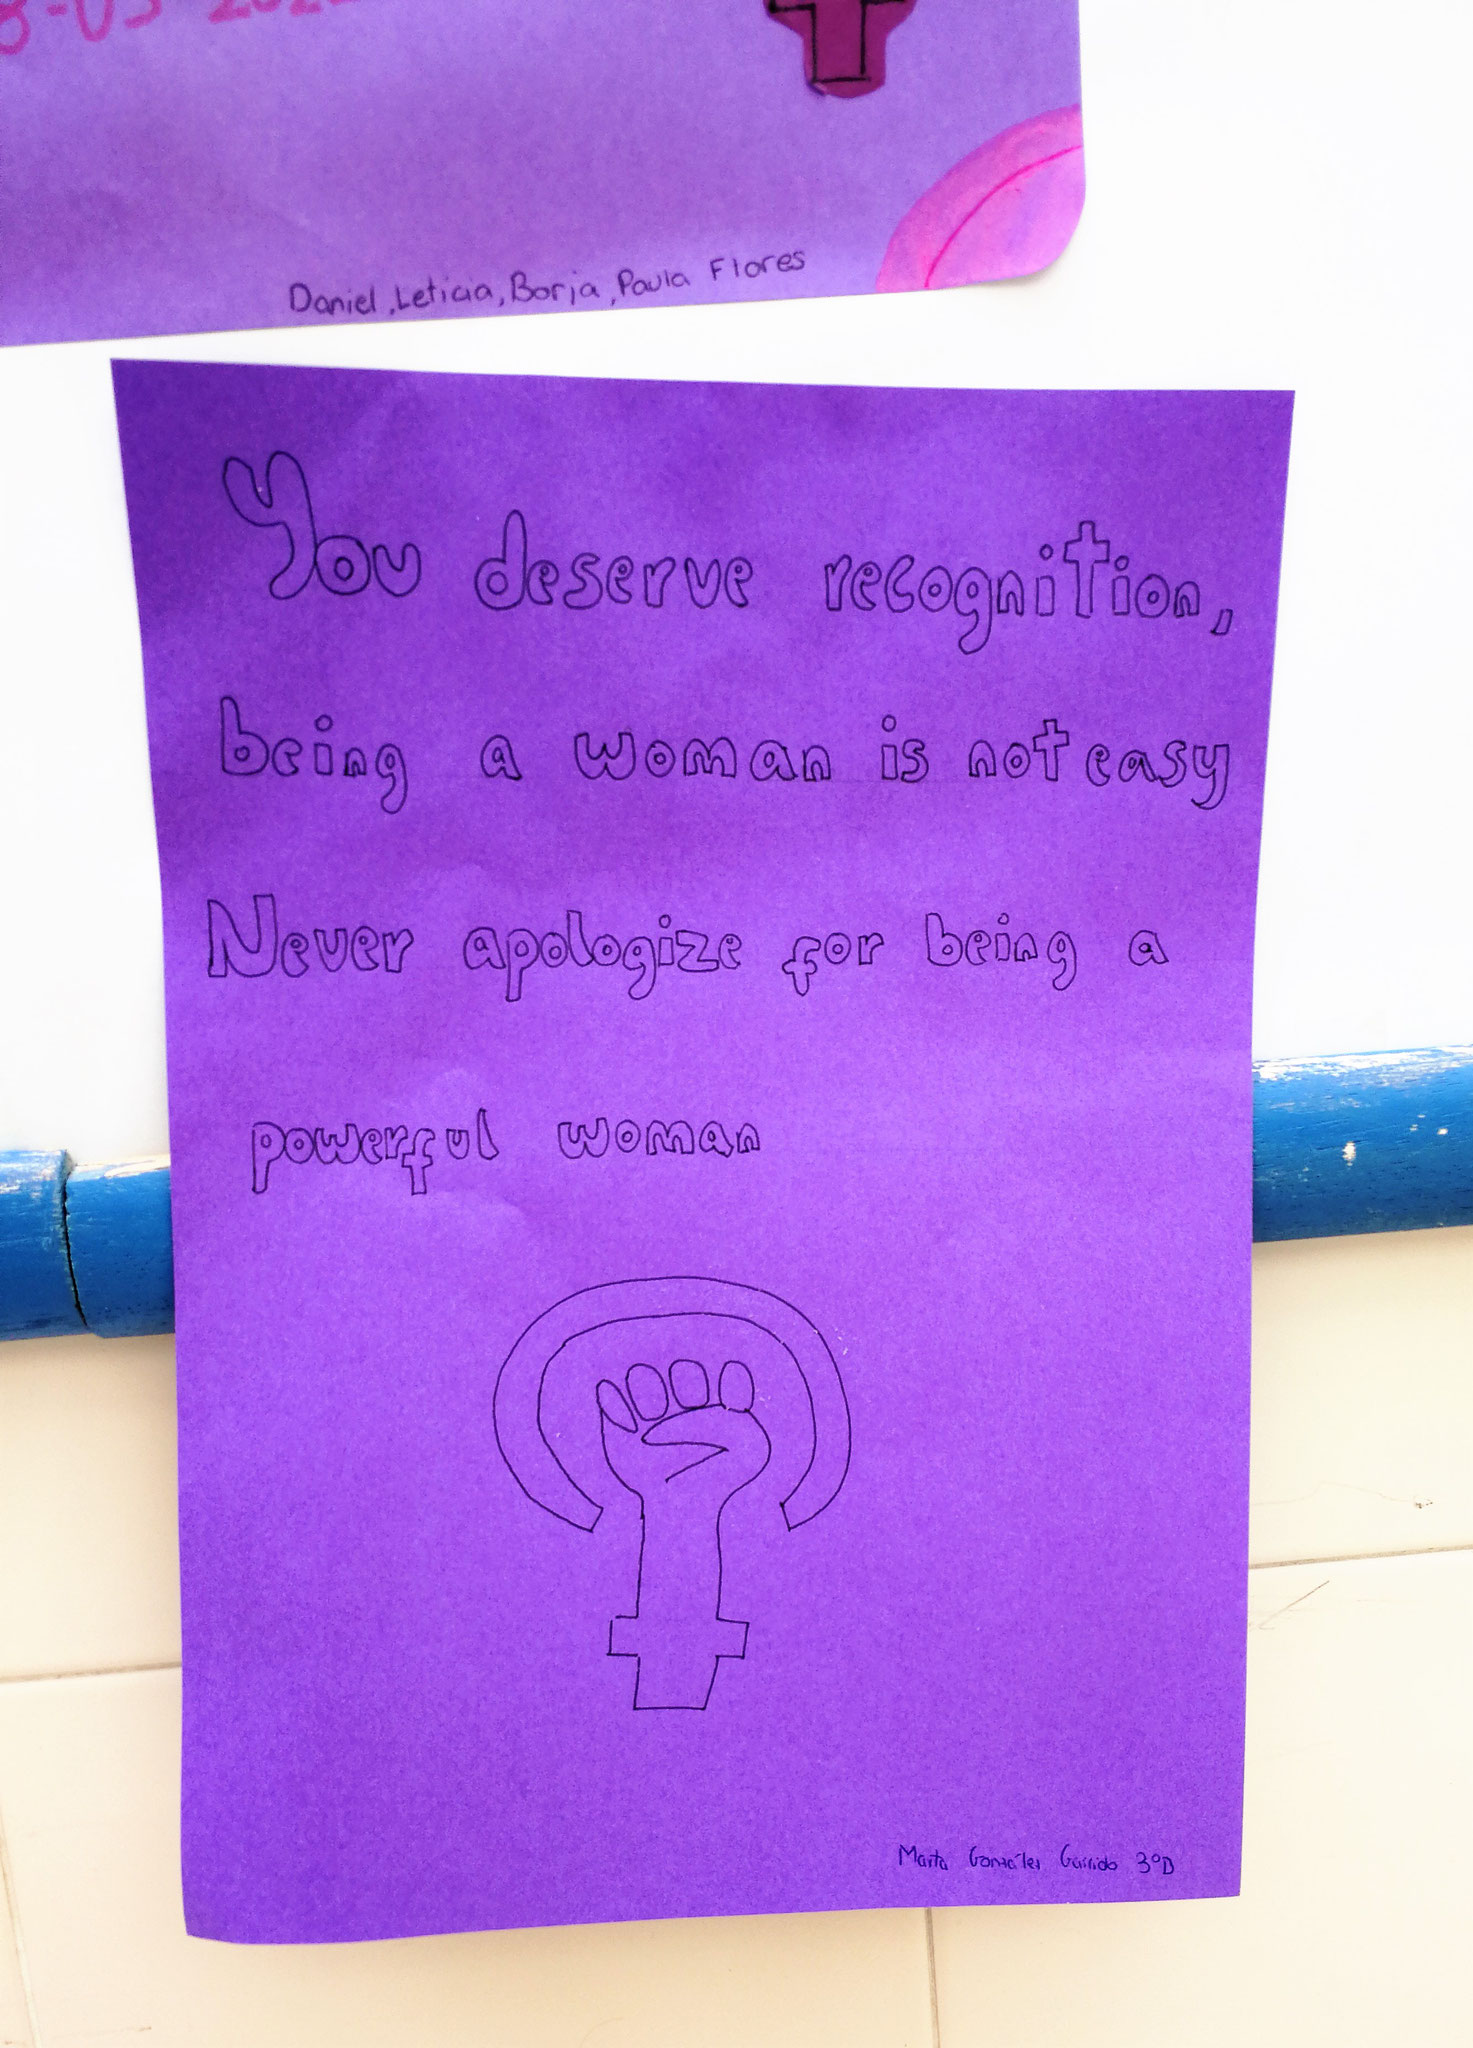 8-03 2022
Daniel, Leticia, Borja, Paula Flores
You deserve recognition,
being a woman is not easy
Never apologize for being a
powerful woman
Marta González Garrido 3ºD